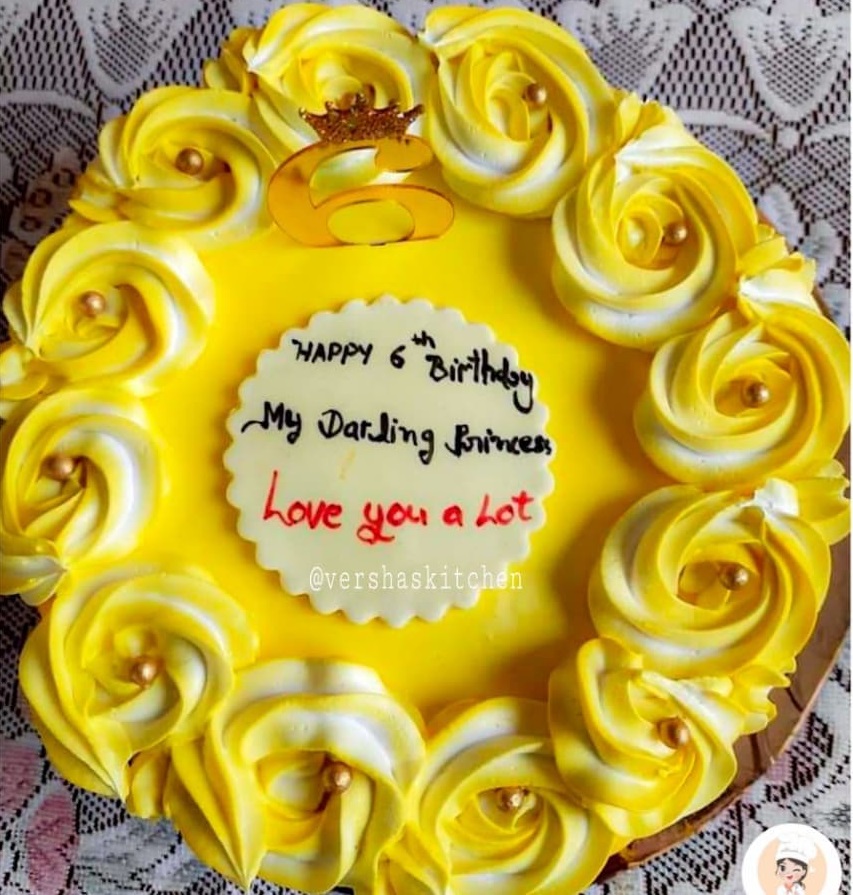 6
HAPPY 6th Birthday
My Darling Princess
Love you a Lot
@vershaskitchen